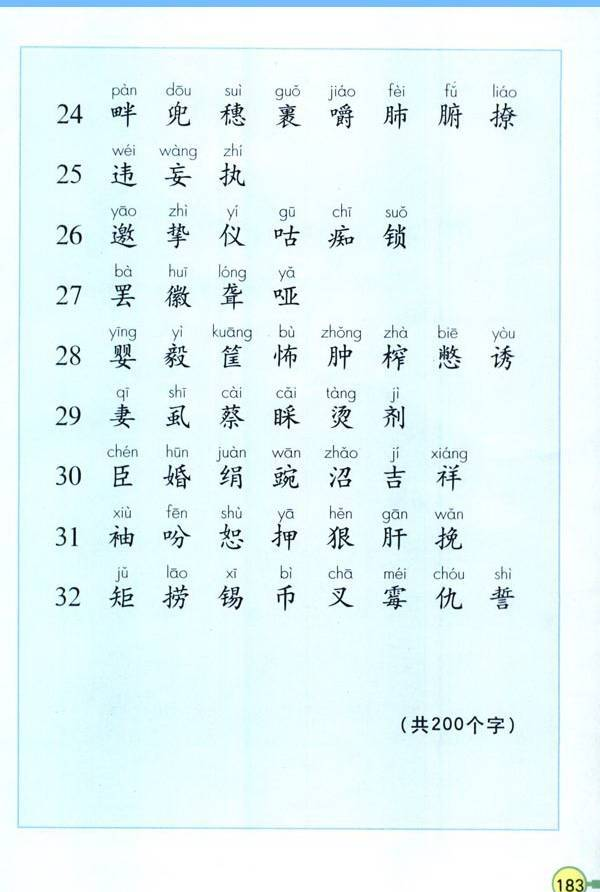 pàn dōu suì guǒ jiáo fèi fǔ liáo
24 畔 兜 穗 裹 嚼 肺 腑 撩
wéi wàng zhí
25 违 妄 执
yāo zhì yí gū chī suǒ
26 邀 挚 仪 咕 痴 锁
bà huī lóng yǎ
27 罢 徽 聋 哑
yīng yì kuāng bù zhǒng zhà biē yòu
28 婴 毅 筐 怖 肿 榨 憋 诱
qī shī cài cǎi tàng jì
29 妻 虱 蔡 睬 烫 剂
chén hūn juàn wān zhǎo jí xiáng
30 臣 婚 绢 豌 沼 吉 祥
xiù fēn shù yā hěn gān wǎn
31 袖 吩 恕 押 狠 肝 挽
jǔ lāo xī bì chā méi chóu shì
32 矩 捞 锡 币 叉 霉 仇 誓
（共200个字）
183